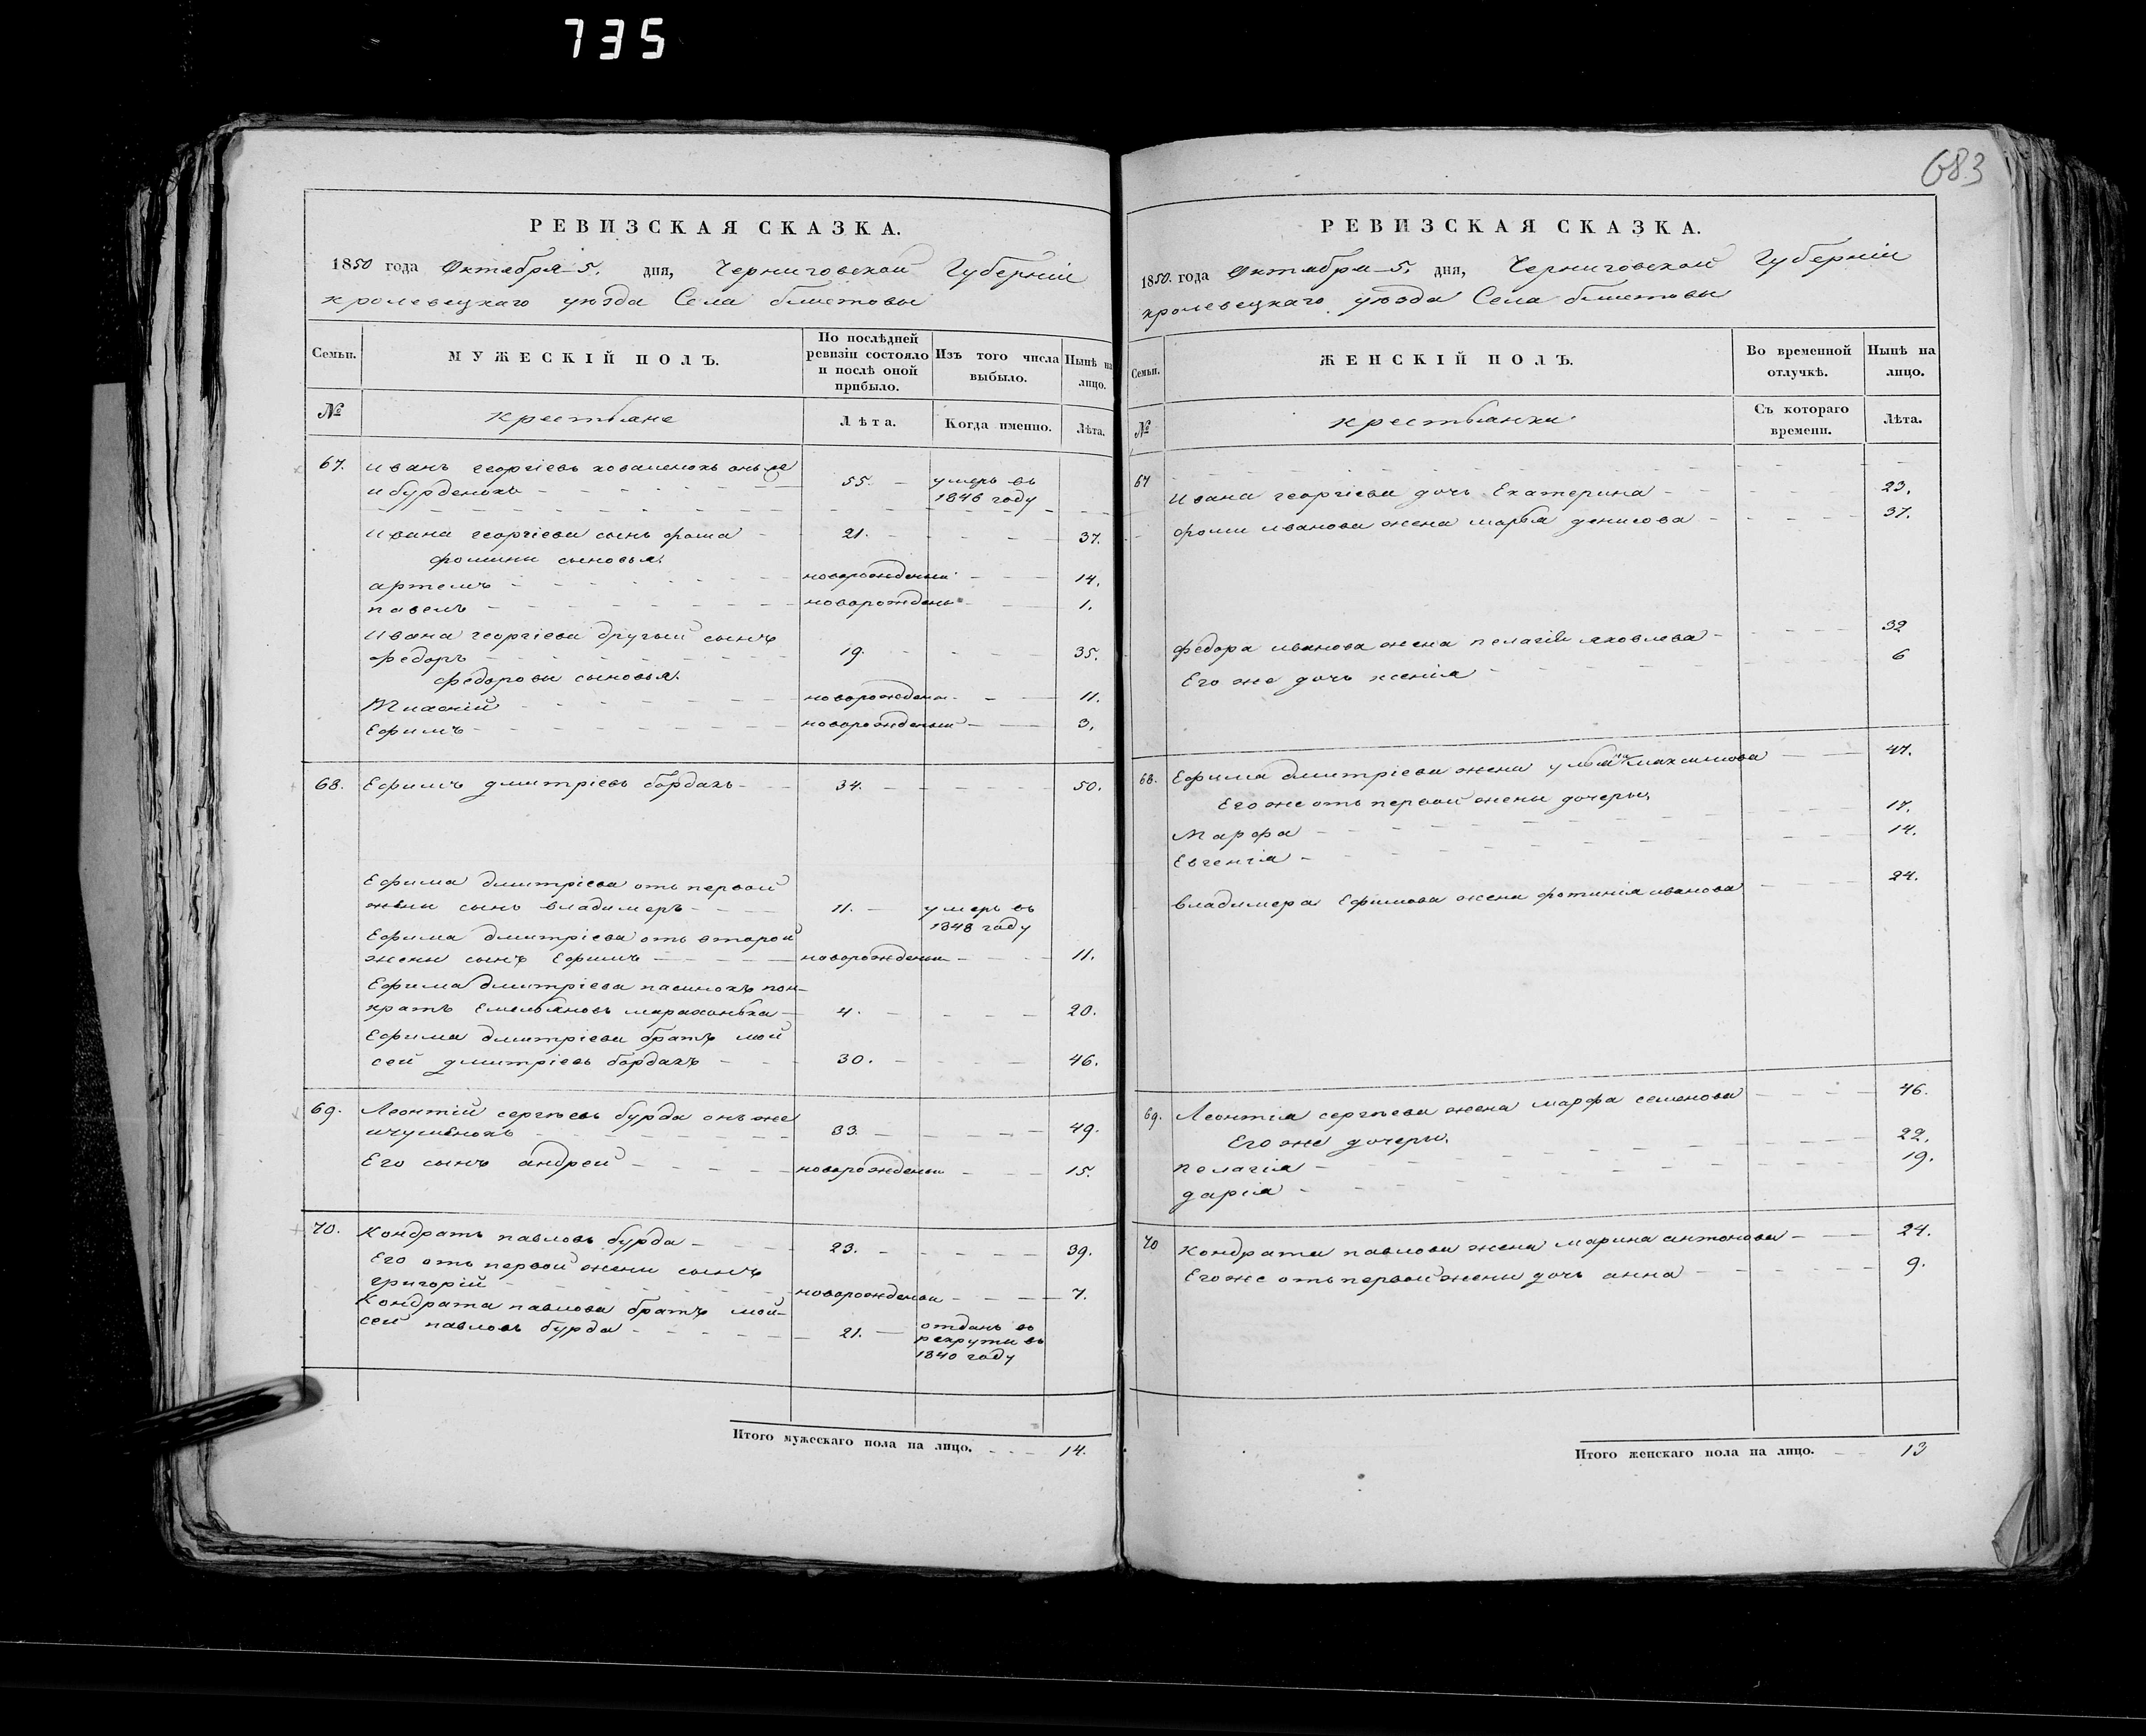 735
683
РЕВИЗСКАЯ СКАЗКА.
1850 года Октября 5. дня, Черниговской Губерніи
кролевецкаго уѣзда Села блистовы
Семьи.
МУЖЕСКІЙ ПОЛЪ.
По послѣдней ревизіи состояло и послѣ оной прибыло.
Изъ того числа выбыло.
Нынѣ на лицо.
№
крестьяне
Лѣта.
Когда именно.
Лѣта.
67. иванъ георгіевъ коваленокъ онъ же
и бурденокъ 55. умеръ въ 1846 году
ивана георгіева сынъ фома 21. 37.
фомины сыновья.
артемъ новорожденый 14.
павелъ новорожденъ 1.
ивана георгіева другый сынъ
федоръ 19. 35.
федоровы сыновья.
новорожденъ 11.
Ефимъ новорожденый 3.
68. Ефимъ дмитріевъ бордакъ 34. 50.
Ефима дмитріева отъ первой
жены сынъ владимеръ 11. умеръ въ 1848 году
Ефима дмитріева отъ второй
жены сынъ Ефимъ новорожденый 11.
Ефима дмитріева пасинокъ пон-
кратъ Емельяновъ 4. 20.
Ефима дмитріева братъ мой
сей дмитріевъ бордакъ 30. 46.
69. Леонтій сергѣевъ бурда онъ же
игуменокъ 33. 49.
Его сынъ андрей новорожденый 15.
70. Кондратъ павловъ бурда 23. 39.
Его отъ первой жены сынъ
григорій новорожденый 7.
Кондрата павлова братъ мой-
сей павловъ бурда 21. отданъ въ рекруты въ 1840 году
Итого мужескаго пола на лицо. 14.
РЕВИЗСКАЯ СКАЗКА.
1850. года Октября 5. дня, Черниговской Губерніи
кролевецкаго уѣзда Села блистовы
Семьи.
ЖЕНСКІЙ ПОЛЪ.
Во временной отлучкѣ.
Нынѣ на лицо.
№
крестьянки
Съ котораго времени.
Лѣта.
67 ивана георгіева дочь Екатерина 23.
фомы иванова жена марѳа денисова 37.
федора иванова жена пелагія яковлева 32
Его же дочь ксенія 6
68. Ефима дмитріева жена ульяна максимова 47.
Его же отъ первой жены дочеры.
Марфа 17.
Евгенія 14.
владимера Ефимова жена фотинія иванова 24.
69. Леонтія сергѣева жена марфа семенова 46.
Его же дочеры.
пелагія 22.
дарія 19.
70 Кондрата павлова жена марина антонова 24.
Его же отъ первой жены дочь анна 9.
Итого женскаго пола на лицо. 13